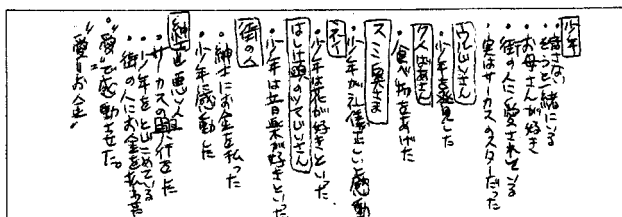 少年
・緒さな
・ぞうと一緒にいる
・お母さんが好き
・街の人に愛されている
・実はサーカスのスターだった
ウルじいさん
・少年を発見した
クんばあさん
・食べ物をあげた
スミス奥さま
・少年が礼儀正しいと感動
・少年は花が好きといった
はしけ頭のツてじいさん
・少年は音楽が好きといった
街の人
・紳士にお金を払った
・少年に感動した
紳士=悪い人
・サーカスの興行をした
・少年をとじこめている
・街の人にお金を払わせ
・"愛"で感動させた。
"愛=お金"